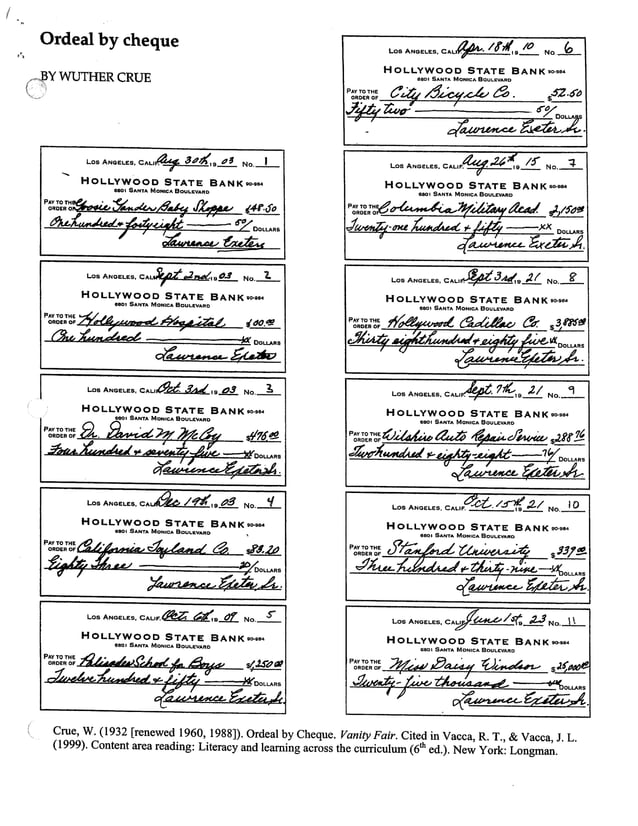 Ordeal by cheque
BY WUTHER CRUE
LOS ANGELES, CALIF. Aug 30th 19 03 No. 1
HOLLYWOOD STATE BANK 90-984
6801 SANTA MONICA BOULEVARD
PAY TO THE
ORDER OF Goosie Gander Baby Shoppe $148.50
One hundred + forty eight — 50/ DOLLARS
Lawrence Exeter
LOS ANGELES, CALIF. Sept 2nd 19 03 No. 2
HOLLYWOOD STATE BANK 90-984
6801 SANTA MONICA BOULEVARD
PAY TO THE
ORDER OF Hollywood Hospital $100.00
One hundred — xx DOLLARS
Lawrence Exeter
LOS ANGELES, CALIF. Oct. 3rd 19 03 No. 3
HOLLYWOOD STATE BANK 90-984
6801 SANTA MONICA BOULEVARD
PAY TO THE
ORDER OF Dr. David M McCoy $475.00
Four hundred + seventy five — xx DOLLARS
Lawrence Exeter Sr.
LOS ANGELES, CALIF. Dec 19th 19 03 No. 4
HOLLYWOOD STATE BANK 90-984
6801 SANTA MONICA BOULEVARD
PAY TO THE
ORDER OF California Toyland Co. $83.20
Eighty Three — 20/ DOLLARS
Lawrence Exeter Sr.
LOS ANGELES, CALIF. Oct. 6th 19 09 No. 5
HOLLYWOOD STATE BANK 90-984
6801 SANTA MONICA BOULEVARD
PAY TO THE
ORDER OF Palisades School for Boys $1,250.00
Twelve hundred + fifty — xx DOLLARS
Lawrence Exeter Sr.
LOS ANGELES, CALIF. Apr. 18th 19 10 No 6
HOLLYWOOD STATE BANK 90-984
6801 SANTA MONICA BOULEVARD
PAY TO THE
ORDER OF City Bicycle Co. $52.50
Fifty two — 50/ DOLLARS
Lawrence Exeter Sr.
LOS ANGELES, CALIF. Aug 26th 19 15 No. 7
HOLLYWOOD STATE BANK 90-984
6801 SANTA MONICA BOULEVARD
PAY TO THE
ORDER OF Columbia Military Acad. $2,150.00
Twenty-one hundred + fifty — xx DOLLARS
Lawrence Exeter Sr.
LOS ANGELES, CALIF. Sept 3rd 19 21 No. 8
HOLLYWOOD STATE BANK 90-984
6801 SANTA MONICA BOULEVARD
PAY TO THE
ORDER OF Hollywood Cadillac Co. $3,885.00
Thirty eight hundred + eighty five xx DOLLARS
Lawrence Exeter Sr.
LOS ANGELES, CALIF. Sept. 7th 19 21 No. 9
HOLLYWOOD STATE BANK 90-984
6801 SANTA MONICA BOULEVARD
PAY TO THE
ORDER OF Wilshire Auto Repair Service $288.76
Two hundred + eighty-eight — 76/ DOLLARS
Lawrence Exeter Sr
LOS ANGELES, CALIF. Oct. 15th 19 21 No. 10
HOLLYWOOD STATE BANK 90-984
6801 SANTA MONICA BOULEVARD
PAY TO THE
ORDER OF Stanford University $339.00
Three hundred + thirty-nine — xx DOLLARS
Lawrence Exeter Sr.
LOS ANGELES, CALIF. June 1st 19 23 No. 11
HOLLYWOOD STATE BANK 90-984
6801 SANTA MONICA BOULEVARD
PAY TO THE
ORDER OF Miss Daisy Windsor $25,000.00
Twenty-five thousand — xx DOLLARS
Lawrence Exeter Sr.
Crue, W. (1932 [renewed 1960, 1988]). Ordeal by Cheque. Vanity Fair. Cited in Vacca, R. T., & Vacca, J. L.
(1999). Content area reading: Literacy and learning across the curriculum (6th ed.). New York: Longman.